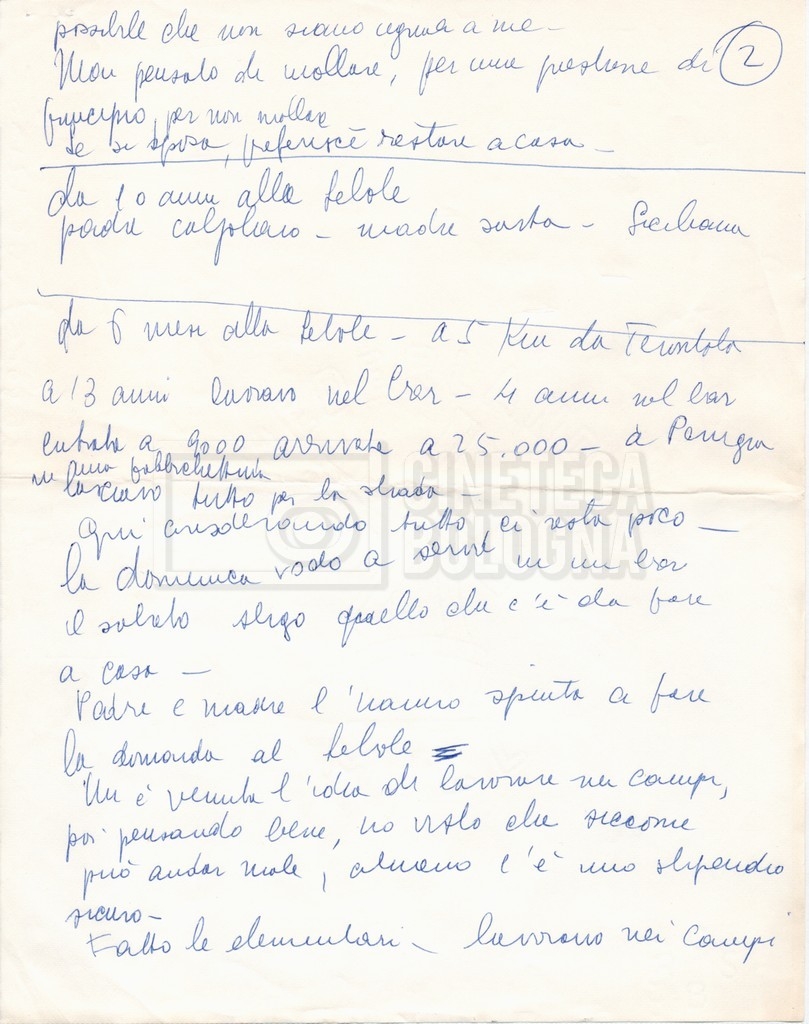 possibile che non siano uguali a me –
Mai pensato di mollare, per una questione di 2
principio, per non mollare
se si sposa, preferisce restare a casa –
da 10 anni alla Lebole
padre calzolaio – madre sarta – Siciliana
da 6 mesi alla Lebole – a 5 Km da Terontola
a 13 anni lavoravo nel bar – 4 anni nel bar
entrata a 9000 arrivata a 25.000 – a Perugia
in una fabbrichettina
lasciavo tutto per la strada –
Qui considerando tutto ci resta poco –
la domenica vado a servire in un bar
il sabato quello che c'è da fare
a casa –
Padre e madre l'hanno spinta a fare
la domanda al Lebole
Mi è venuta l'idea di lavorare nei campi,
poi pensando bene, ho visto che siccome
può andar male, almeno c'è uno stipendio
sicuro –
Fatto le elementari – lavorano nei campi
CINETECA
BOLOGNA